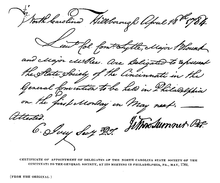 North Carolina Hillsborough April 15th 1784
Lieu. Col Comdt Lytle, Major Blount
and Major McRee Are Delegated to represent
the State Society of the Cincinnati in the
General Convention to be held in Philadelphia
on the first Monday in May next —
Attested
Jethro Sumner Prt.
CERTIFICATE OF APPOINTMENT OF DELEGATES OF THE NORTH CAROLINA STATE SOCIETY OF THE
CINCINNATI TO THE GENERAL SOCIETY, AT ITS MEETING IN PHILADELPHIA, PA., MAY, 1784.
[FROM THE ORIGINAL.]